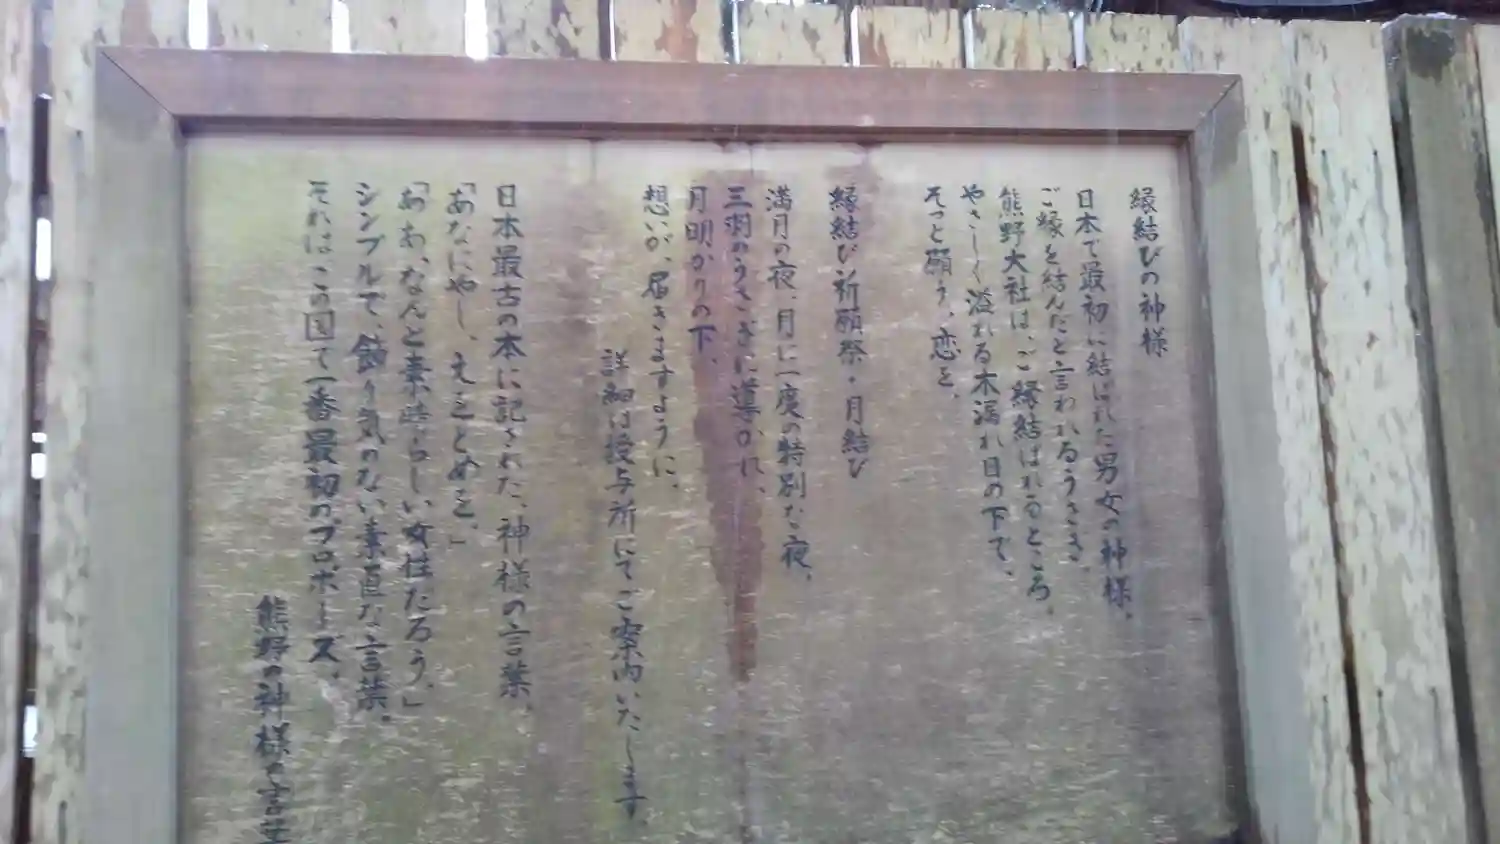 縁結びの神様
日本で最初に結ばれた男女の神様。
ご縁を結んだと言われるうさぎ。
熊野大社は、ご縁結ばれるところ。
やさしく溢れる木漏れ日の下で、
そっと願う、恋を。
縁結び祈願祭・月結び
満月の夜、月に一度の特別な夜、
三羽のうさぎに導かれ、
月明かりの下、
想いが、届きますように。
詳細は授与所にてご案内いたします
日本最古の本に記された、神様の言葉、
「あなにやし、えをとめを。」
「ああ、なんと素晴らしい女性だろう。」
シンプルで、飾り気のない素直な言葉。
それはこの国で一番最初のプロポーズ。
熊野の神様の言葉